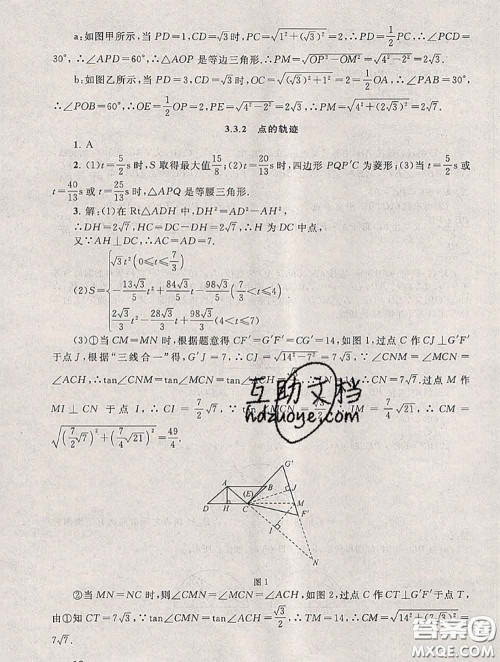 a:如图甲所示,当 PD=1,CD=√3 时,PC=√(1²+(√3)²)=2,∴PD=1/2PC,∴∠PCD=
30°,∴∠APD=60°,∴△AOP 是等边三角形.∴PM=√(OP²−OM²)=√(4²−2²)=2√3.
b:如图乙所示,当 PD=3,CD=√3 时,OC=√((√3)²+1²)=2=1/2OA,∴∠PAB=30°,∴
∠POB=60°,∴OE=1/2OP=2,PE=√(4²−2²)=2√3,∴PM=2√7.
3.3.2 点的轨迹
1. A
2. (1)t=5/2s 时,S 取得最大值15/8;(2)t=20/13s 时,四边形 PQP′C 为菱形;(3)当 t=
40/13s 或 t=25/13s 时,△APQ 是等腰三角形.
3. 解:(1)在 Rt△ADH 中,DH²=AD²−AH²,
∴DH=2√7,HC=DC−DH=2√7.∴H 为 DC 中点,
又∵AH⊥DC,∴AC=AD=7.
(2)S={
√3t²(0≤t≤7/3)
−13√3/5t²+84√3/5t−98√3/5(7/3<t≤4)
2√3/7t²−28/3√3t+98√3/3(4<t≤7)
(3)①当 CM=MN 时,根据题意得 CF′=G′F′=CG′=14,如图 1,过点 C 作 CJ⊥G′F′
于点 J,根据“三线合一”得,G′J=7,CJ=√(14²−7²)=7√3,∵∠CNM=∠MCN=
∠ACH,∴tan∠CNM=tan∠MCN=tan∠ACH=√3/2,∴JN=14,∴CN=7√7.过点 M 作
MI⊥CN 于点 I,∴CI=7/2√7,∵tan∠MCN=√3/2,∴IM=7/4√21,∴CM=
√((7/2√7)²+(7/4√21)²)=49/4.
G′
A
B
(E)
J
D
H
C
M
F′
I
N
图 1
②当 MN=NC 时,则∠CMN=∠MCN=∠ACH,如图 2,过点 C 作 CT⊥G′F′于点 T,
由①知 CT=7√3,∵tan∠CMN=tan∠ACH=√3/2,∴TM=14,∴CM=√(14²+(7√3)²)=
7√7.
互助文档
hdzuoye.com
答案圈
MXQE.COM